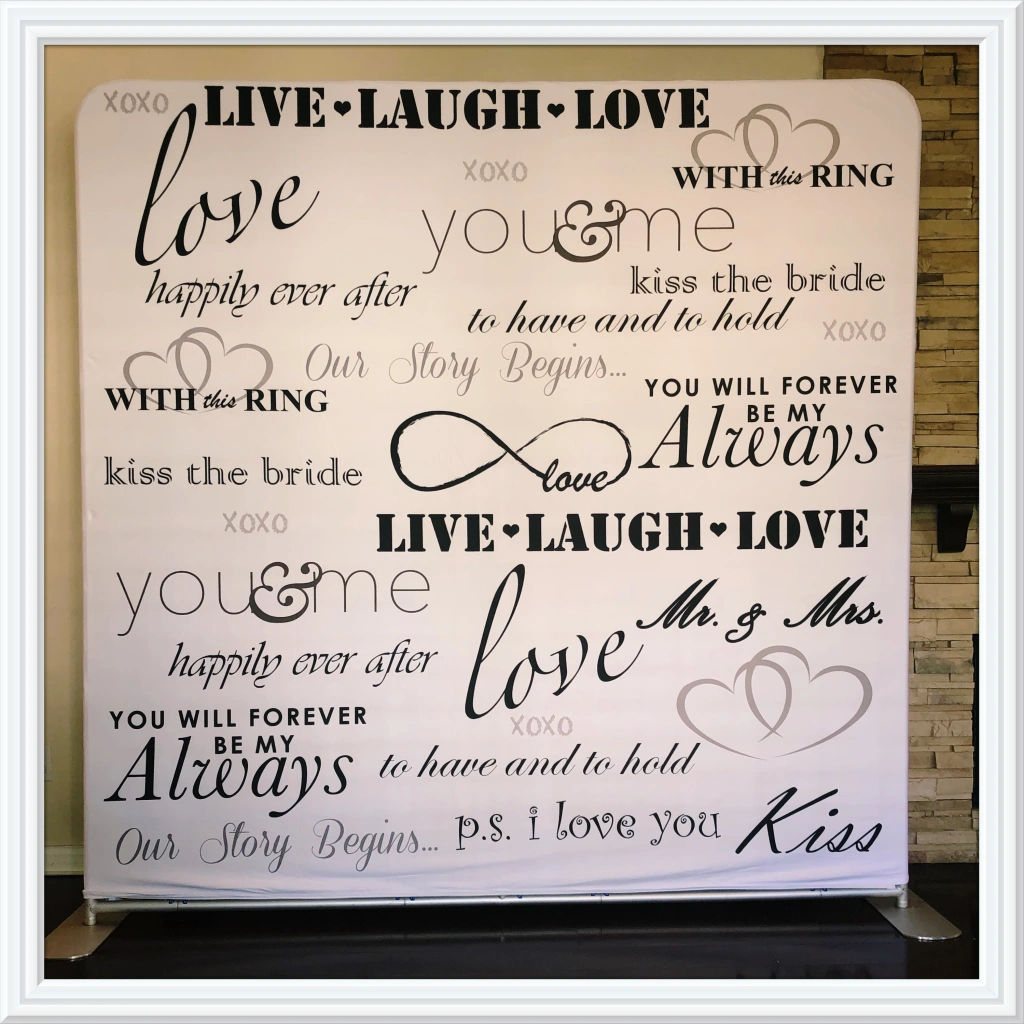 XOXO LIVE ♥ LAUGH ♥ LOVE
love
XOXO
WITH this RING
you & me
happily ever after
kiss the bride
to have and to hold
XOXO
Our Story Begins...
WITH this RING
YOU WILL FOREVER
BE MY
Always
love
kiss the bride
XOXO
LIVE ♥ LAUGH ♥ LOVE
you & me
love
Mr. & Mrs.
happily ever after
YOU WILL FOREVER
BE MY
Always
XOXO
to have and to hold
Our Story Begins...
p.s. i love you
Kiss